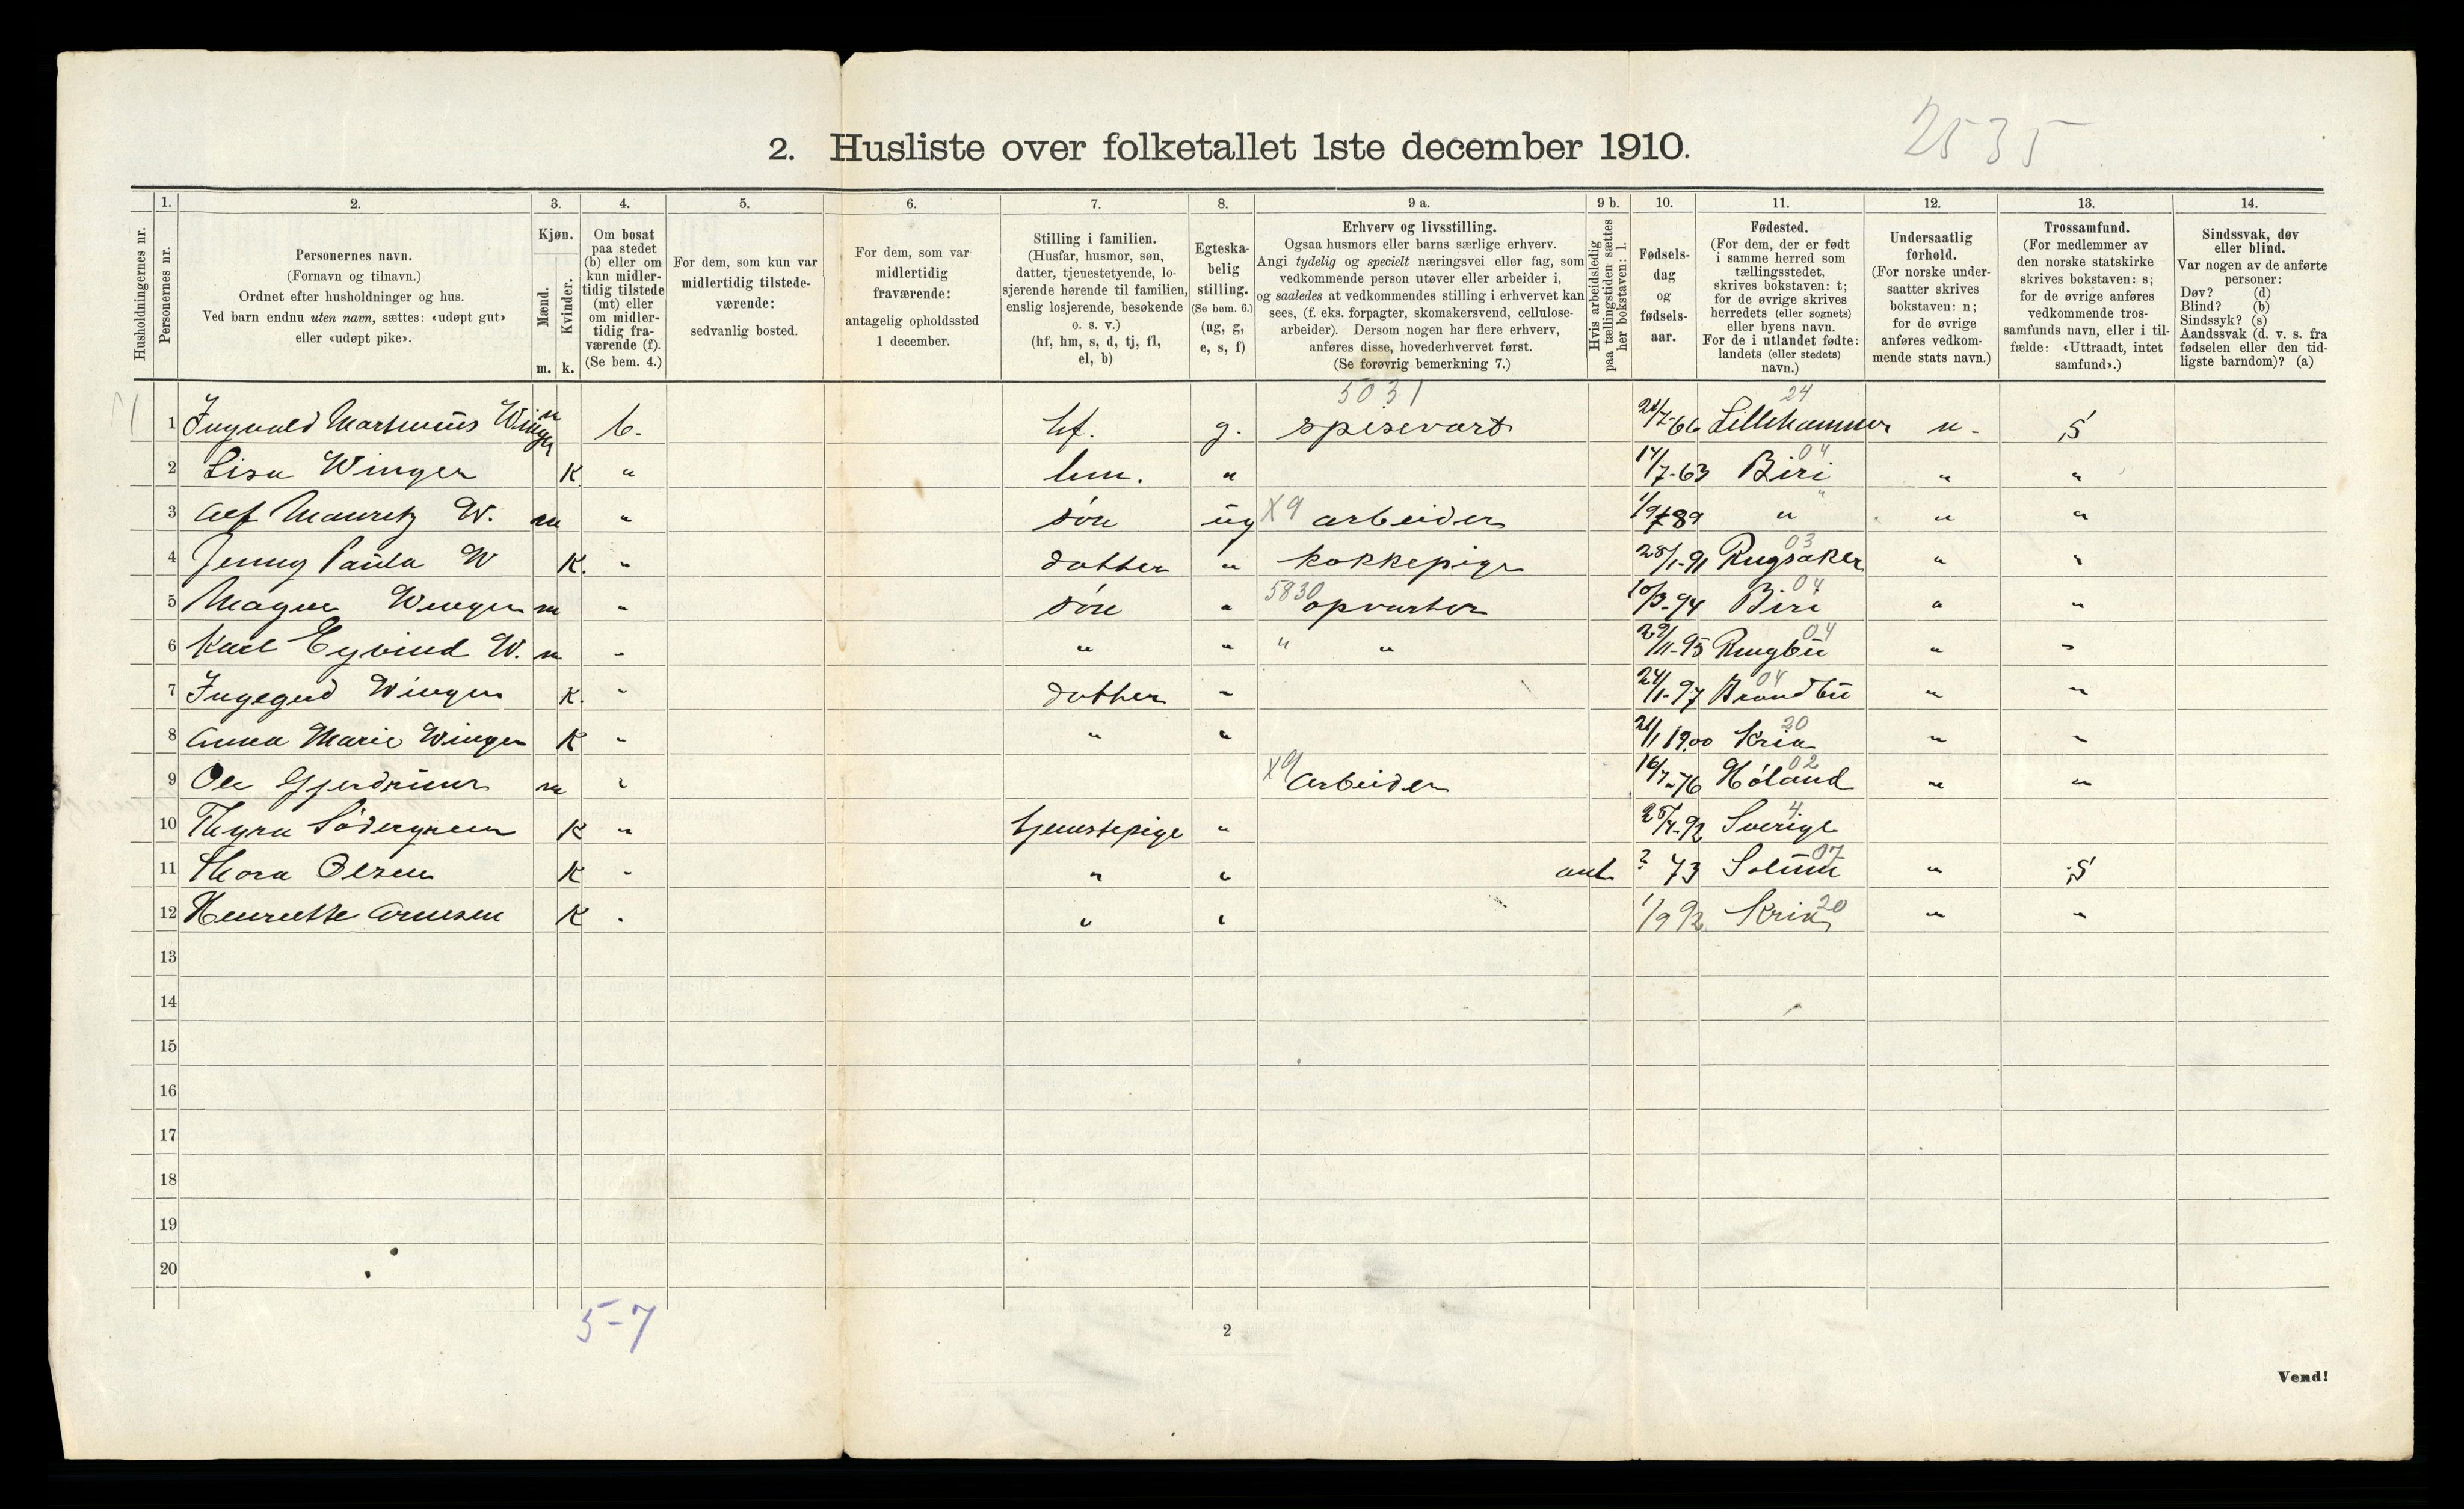 2. Husliste over folketallet 1ste december 1910.
2535
Husholdningernes nr.
1. Personernes nr.
2. Personernes navn.
(Fornavn og tilnavn.)
Ordnet efter husholdninger og hus.
Ved barn endnu uten navn, sættes: «udøpt gut»
eller «udøpt pike».
3. Kjøn.
Mænd. m.
Kvinder. k.
4. Om bosat
paa stedet
(b) eller om
kun midler-
tidig tilstede
(mt) eller
om midler-
tidig fra-
værende (f).
(Se bem. 4.)
5. For dem, som kun var
midlertidig tilstede-
værende:
sedvanlig bosted.
6. For dem, som var
midlertidig
fraværende:
antagelig opholdssted
1 december.
7. Stilling i familien.
(Husfar, husmor, søn,
datter, tjenestetyende, lo-
sjerende hørende til familien,
enslig losjerende, besøkende
o. s. v.)
(hf, hm, s, d, tj, fl,
el, b)
8. Egteska-
belig
stilling.
(Se bem. 6.)
(ug, g,
e, s, f)
9 a. Erhverv og livsstilling.
Ogsaa husmors eller barns særlige erhverv.
Angi tydelig og specielt næringsvei eller fag, som
vedkommende person utøver eller arbeider i,
og saaledes at vedkommendes stilling i erhvervet kan
sees, (f. eks. forpagter, skomakersvend, cellulose-
arbeider). Dersom nogen har flere erhverv,
anføres disse, hovederhvervet først.
(Se forøvrig bemerkning 7.)
9 b. Hvis arbeidsledig
paa tællingstiden sættes
her bokstaven: l.
10. Fødsels-
dag
og
fødsels-
aar.
11. Fødested.
(For dem, der er født
i samme herred som
tællingsstedet,
skrives bokstaven: t;
for de øvrige skrives
herredets (eller sognets)
eller byens navn.
For de i utlandet fødte:
landets (eller stedets)
navn.)
12. Undersaatlig
forhold.
(For norske under-
saatter skrives
bokstaven: n;
for de øvrige
anføres vedkom-
mende stats navn.)
13. Trossamfund.
(For medlemmer av
den norske statskirke
skrives bokstaven: s;
for de øvrige anføres
vedkommende tros-
samfunds navn, eller i til-
fælde: «Uttraadt, intet
samfund».)
14. Sindssvak, døv
eller blind.
Var nogen av de anførte
personer:
Døv? (d)
Blind? (b)
Sindssyk? (s)
Aandssvak (d. v. s. fra
fødselen eller den tid-
ligste barndom)? (a)
5031 24
1 Ingvald Martinius Winger m b. hf. g. spisevært 66 Lillehammer n. S
04
2 Lisa Winger K " hm. " 17/7-63 Biri " "
3 Alf Mauretz W. m " søn ug X9 arbeider 1/9 89 " " "
03
4 Jenny Paula W K. " datter " kokkepige 28/1-91 Ringsaker " "
5830 04
5 Magne Winger m " søn " opvarter 10/3-94 Biri " "
04
6 Karl Eyvind W. m " " " " " 29/11-95 Ringbu " "
04
7 Ingegerd Winger K. " datter " 24/1-97 Brandbu " "
20
8 Anna Marie Winger K " " " 21/1 1900 Kria " "
02
9 Ole Gjerdrum m " X9 Arbeider 16/7-76 Høland " "
4
10 Thyra Södergren K " tjenestepige " 25/4-92 Sverige
07
11 Thora Olsen K " " " ant ? 73 Solum " S
20
12 Henriette Arnesen K " " " 1/9 92 Kria " "
13
14
15
16
17
18
19
20
5-7
2
Vend!